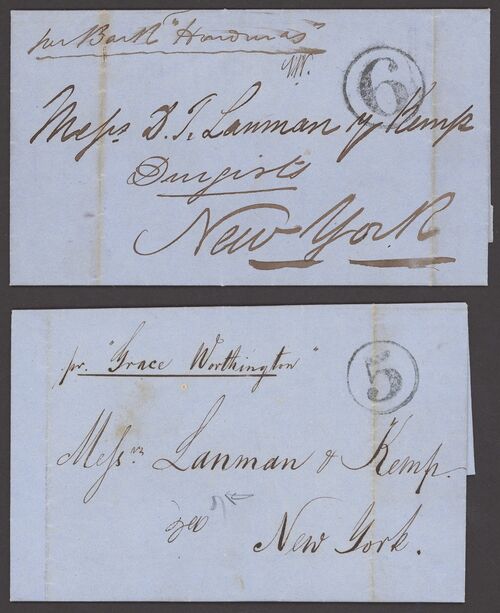 per Bark "Honduras"
6
Messrs D. T. Lanman & Kemp
Drugists
New York
pr. "Grace Worthington"
5
Messrs. Lanman & Kemp.
New York.